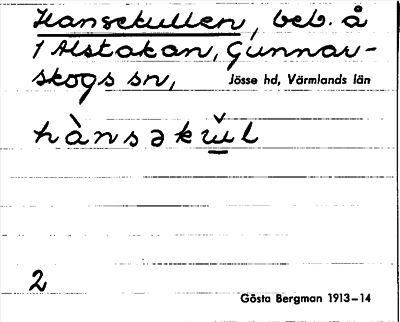 Hansekullen, beb. å
1 Alstakan, Gunnar-
skogs sn, Jösse hd, Värmlands län
hànsəkw̌l
2
Gösta Bergman 1913–14